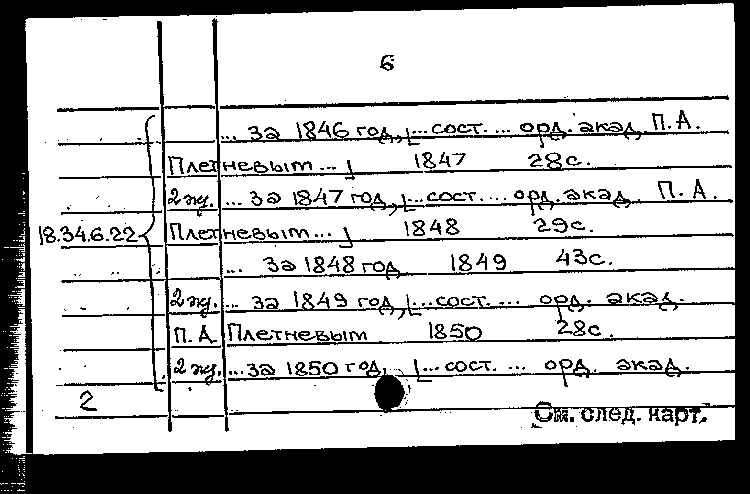 6
... за 1846 год, [...сост. ... орд. акад. П.А.
Плетневым ... ] 1847 28с.
2 экз. ... за 1847 год, [...сост. ... орд. акад. П.А.
18.34.6.22 Плетневым ... ] 1848 29с.
... за 1848 год 1849 43с.
2 экз. ... за 1849 год, [...сост. ... орд. акад.
П.А. Плетневым 1850 28с.
2 экз. ... за 1850 год, [...сост. ... орд. акад.
2
См. след. карт.